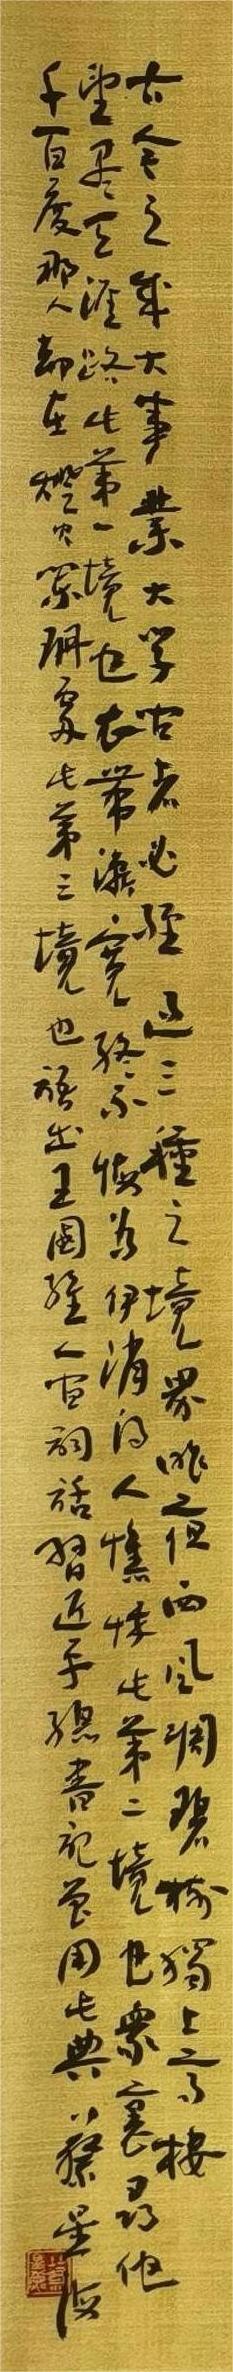 古今之成大事業大学问者必經過三種之境界昨夜西风凋碧樹獨上高楼
望尽天涯路此第一境也衣带漸寬終不悔为伊消得人憔悴此第二境也衆裏尋他
千百度那人却在燈火阑珊處此第三境也語出王國維人间詞話習近平總書記曾用此典蔡星